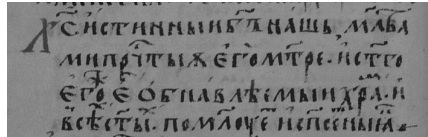 Хс҃ истинныи бг҃ъ нашь, мл҃тва
ми прⷭ҇тыѧ єго мт҃ре · и ст҃го
єгоⷤ є҃ ѡбнавлѧемыи храⷨ · и
всѣⷯ ст҃ыⷯ · помлⷭ҇уеⷮ и спсⷭ҇еть ны ꙗ